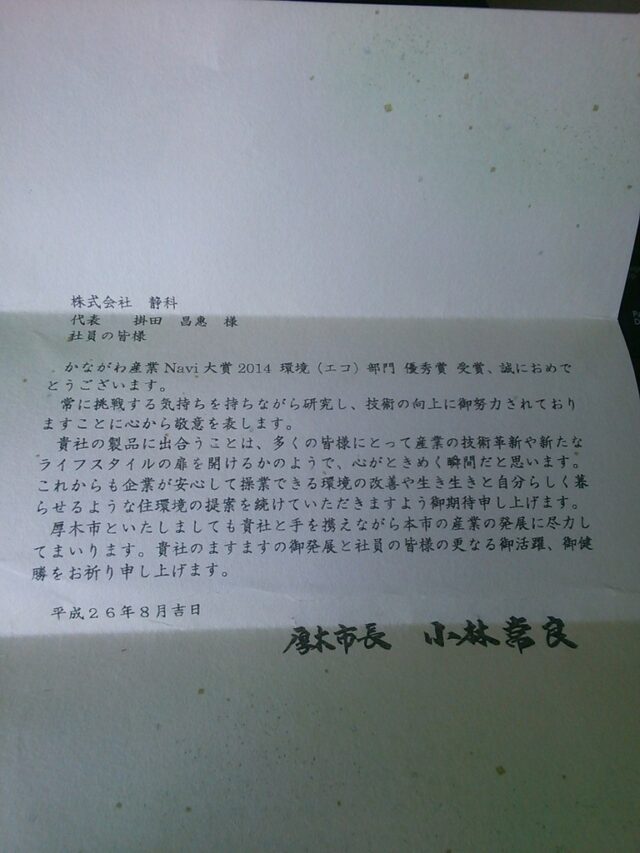 株式会社 静科
代表 掛田 昌惠 様
社員の皆様
かながわ産業Navi大賞2014 環境(エコ)部門 優秀賞 受賞、誠におめで
とうございます。
常に挑戦する気持ちを持ちながら研究し、技術の向上に御努力されており
ますことに心から敬意を表します。
貴社の製品に出会うことは、多くの皆様にとって産業の技術革新や新たな
ライフスタイルの扉を開けるかのようで、心がときめく瞬間だと思います。
これからも企業が安心して操業できる環境の改善や生き生きと自分らしく暮
らせるような住環境の提案を続けていただきますよう御期待申し上げます。
厚木市といたしましても貴社と手を携えながら本市の産業の発展に尽力し
てまいります。貴社のますますの御発展と社員の皆様の更なる御活躍、御健
勝をお祈り申し上げます。
平成26年8月吉日
厚木市長 小林常良